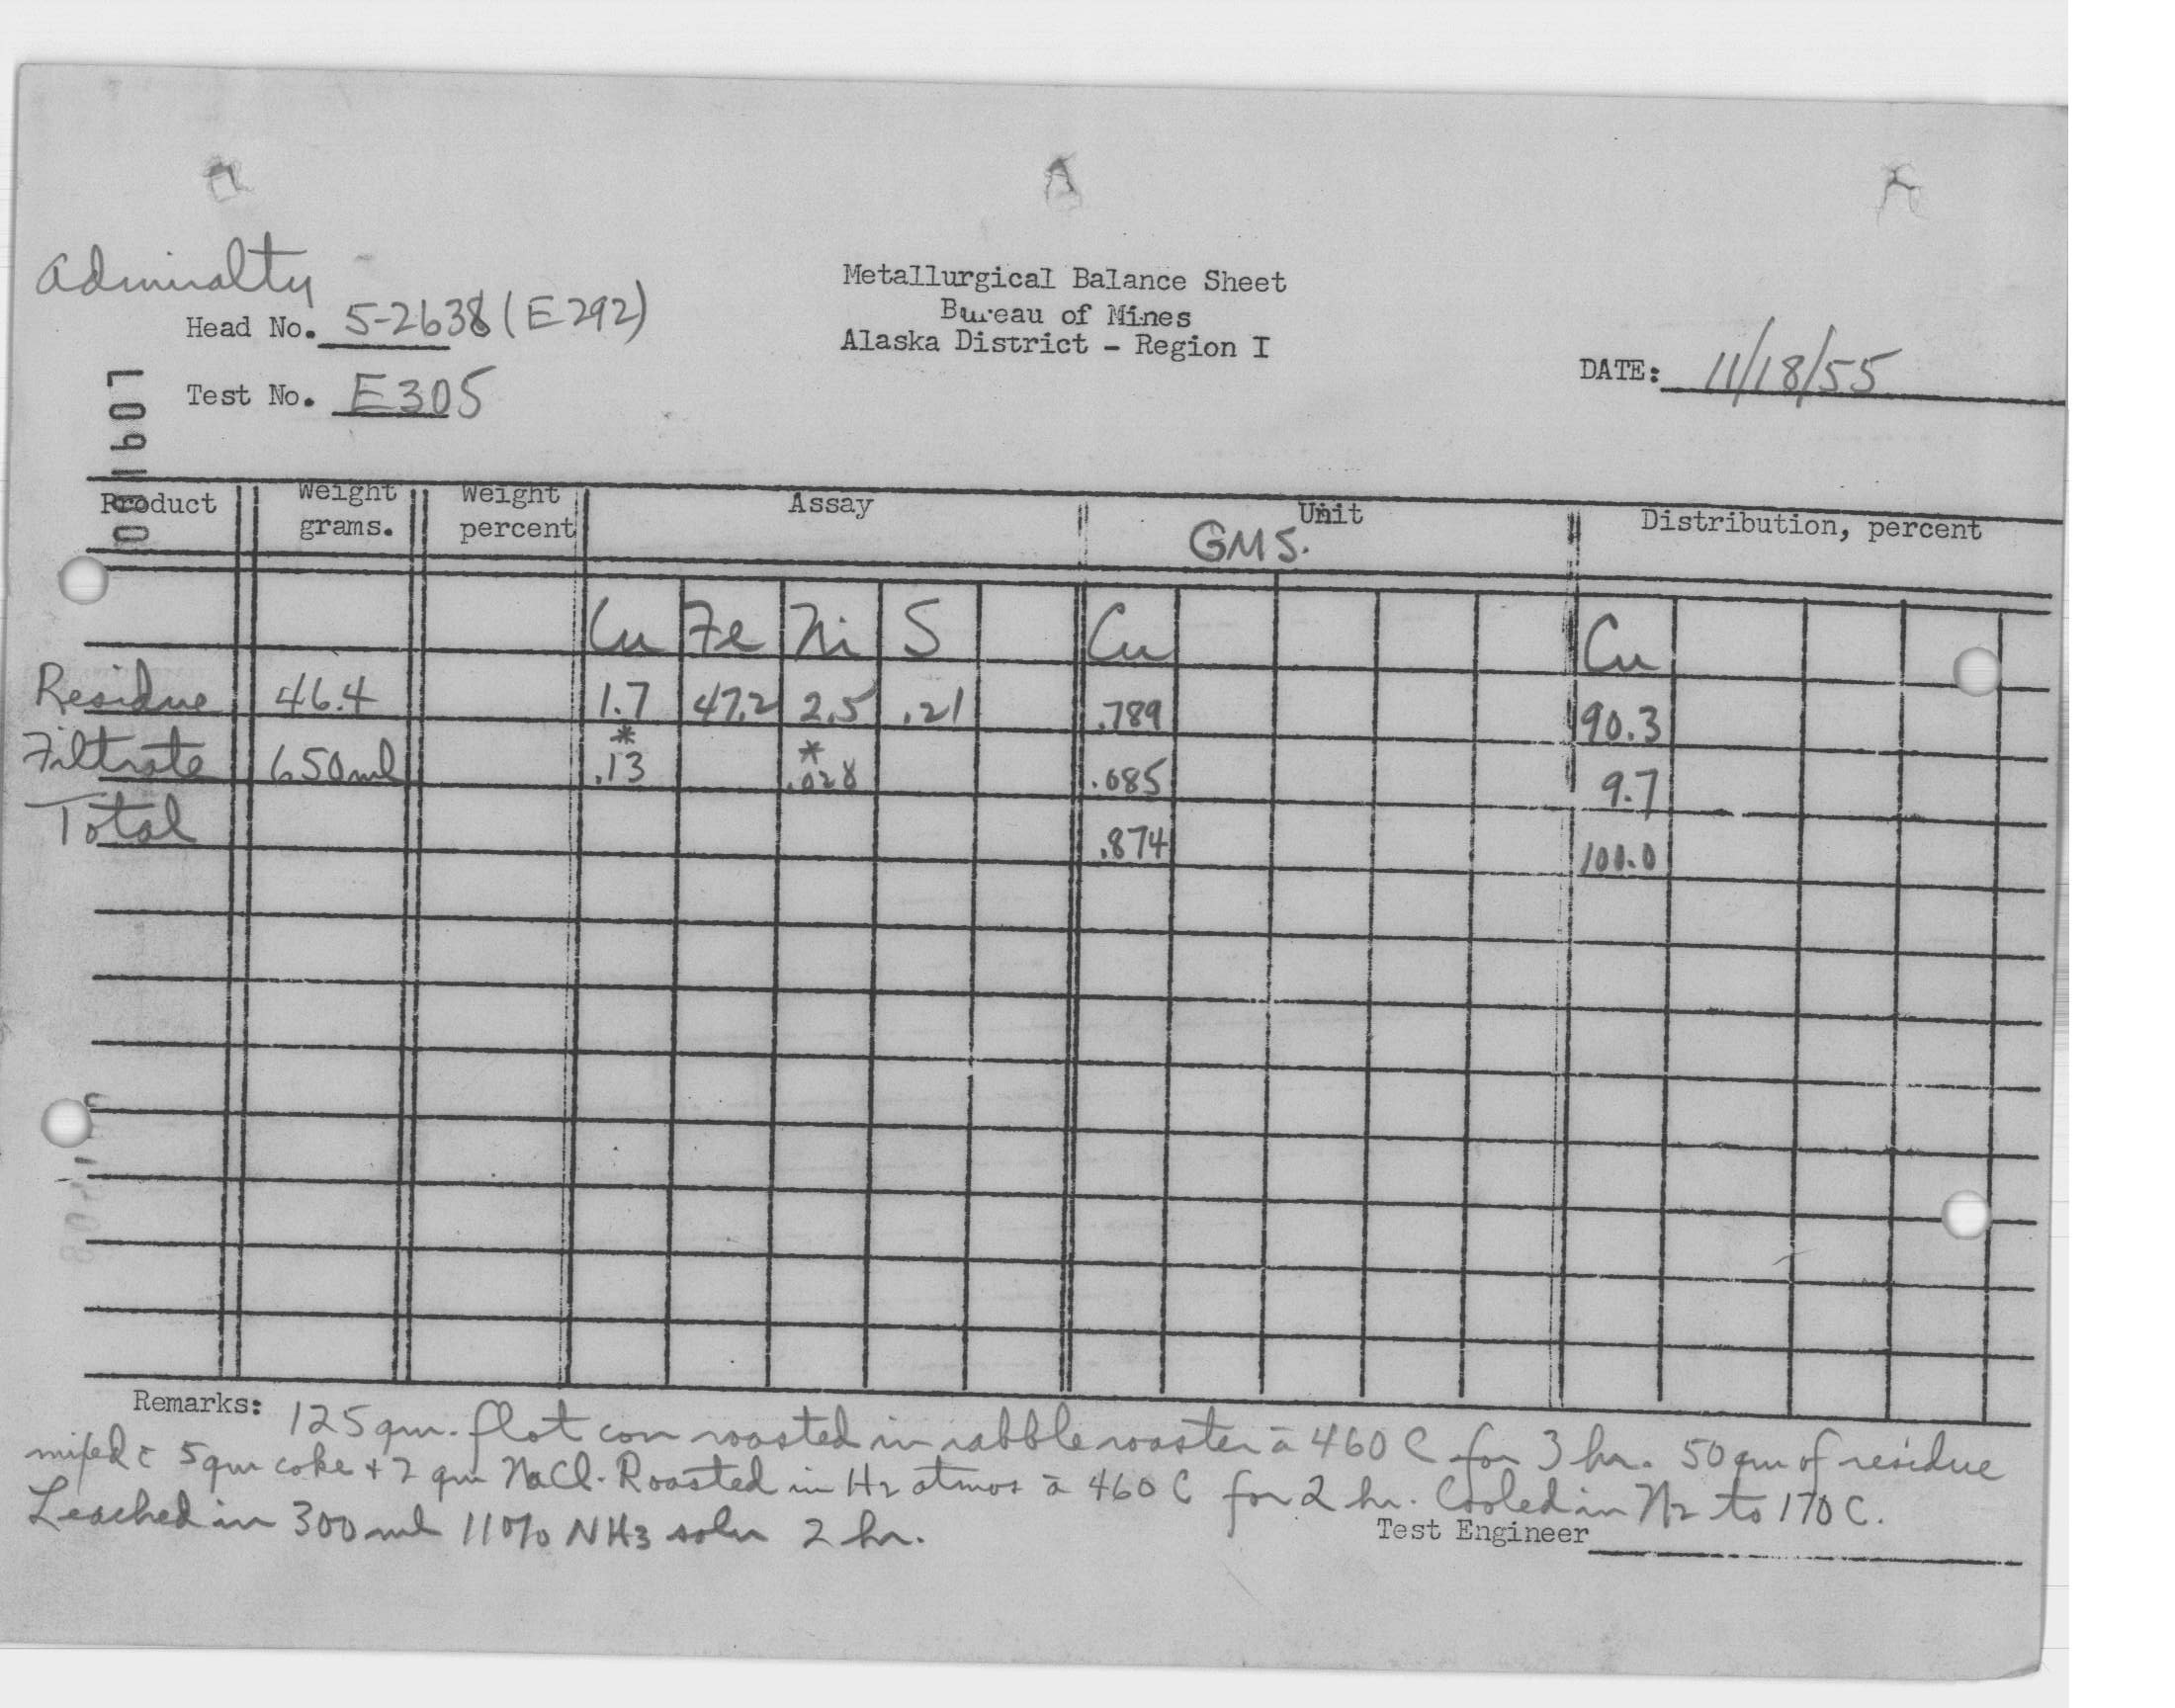 Admiralty
Metallurgical Balance Sheet
Head No. 5-2638 (E292)
Bureau of Mines
Alaska District - Region I
Test No. E305
DATE: 11/18/55
Product Weight grams. Weight percent Assay Unit Distribution, percent
GMS.
Cu Fe Ni S Cu Cu
Residue 46.4 1.7 47.2 2.5 .21 .789 90.3
* *
Filtrate 650 ml .13 .028 .085 9.7
Total .874 100.0
Remarks: 125 gm. flot con roasted in rabble roaster a 460 C for 3 hr. 50 gm of residue
mixed c 5 gm coke + 2 gm NaCl. Roasted in H2 atmos a 460 C for 2 hr. Cooled in N2 to 170 C.
Leached in 300 ml 11% NH3 soln 2 hr.
Test Engineer